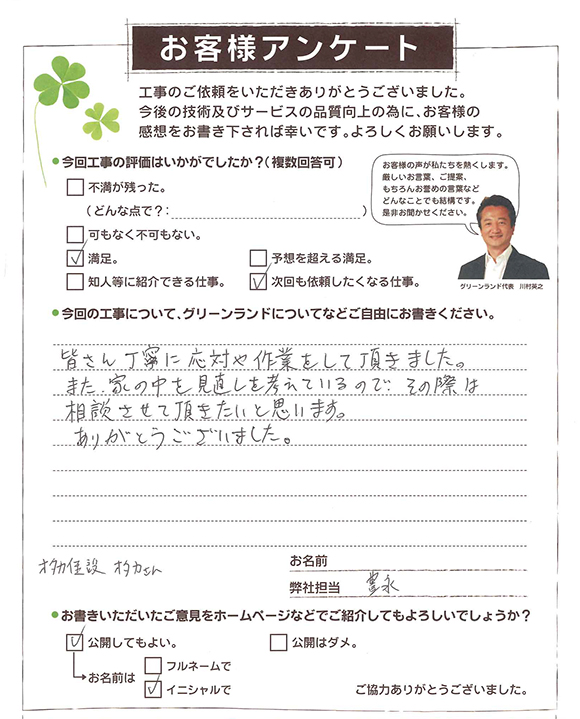 お客様アンケート
工事のご依頼をいただきありがとうございました。
今後の技術及びサービスの品質向上の為に、お客様の
感想をお書き下されば幸いです。よろしくお願いします。
●今回工事の評価はいかがでしたか?(複数回答可)
不満が残った。
(どんな点で?: )
可もなく不可もない。
満足。
予想を超える満足。
知人等に紹介できる仕事。
次回も依頼したくなる仕事。
お客様の声が私たちを熱くします。
厳しいお言葉、ご提案、
もちろんお誉めの言葉など
どんなことでも結構です。
是非お聞かせください。
グリーンランド代表 川村英之
●今回の工事について、グリーンランドについてなどご自由にお書きください。
皆さん丁寧に応対や作業をして頂きました。
また、家の中を見直しを考えているので、その際は
相談させて頂きたいと思います。
ありがとうございました。
オタカ住設 オタカさん
お名前
弊社担当 豊永
●お書きいただいたご意見をホームページなどでご紹介してもよろしいでしょうか?
公開してもよい。
公開はダメ。
お名前は
フルネームで
イニシャルで
ご協力ありがとうございました。